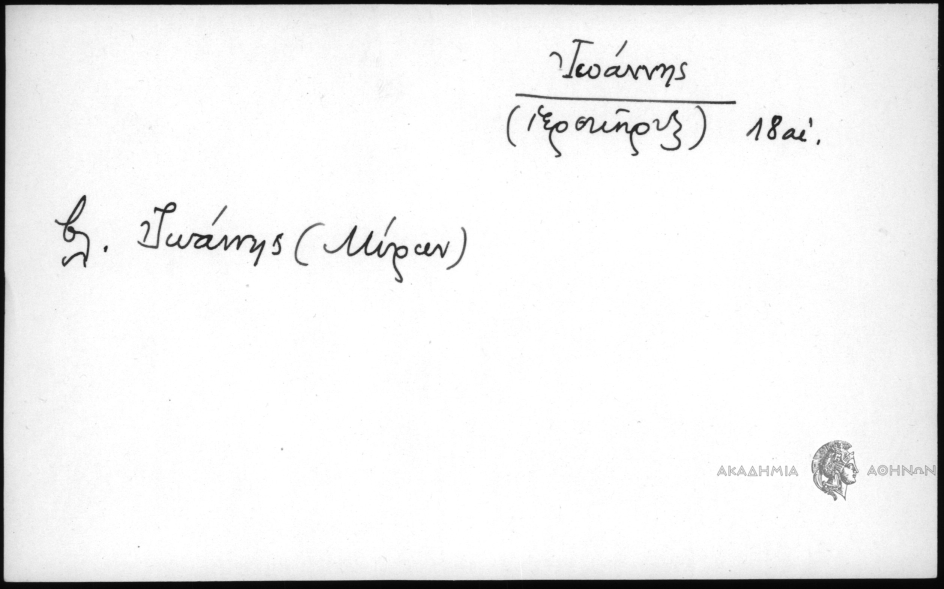 Ἰωάννης
(ἱεροκῆρυξ) 18 αἰ.
βλ. Ἰωάννης (Μύρων)
ΑΚΑΔΗΜΙΑ ΑΘΗΝΩΝ